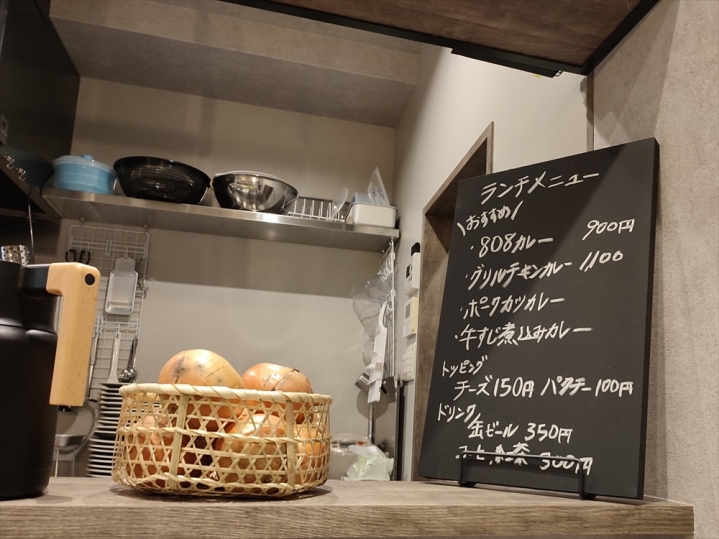 ランチメニュー
\おすすめ/
・808カレー 900円
・グリルチキンカレー 1,100
・ポークカツカレー
・牛すじ煮込みカレー
トッピング
チーズ150円 パクチー100円
ドリンク
缶ビール 350円
300円